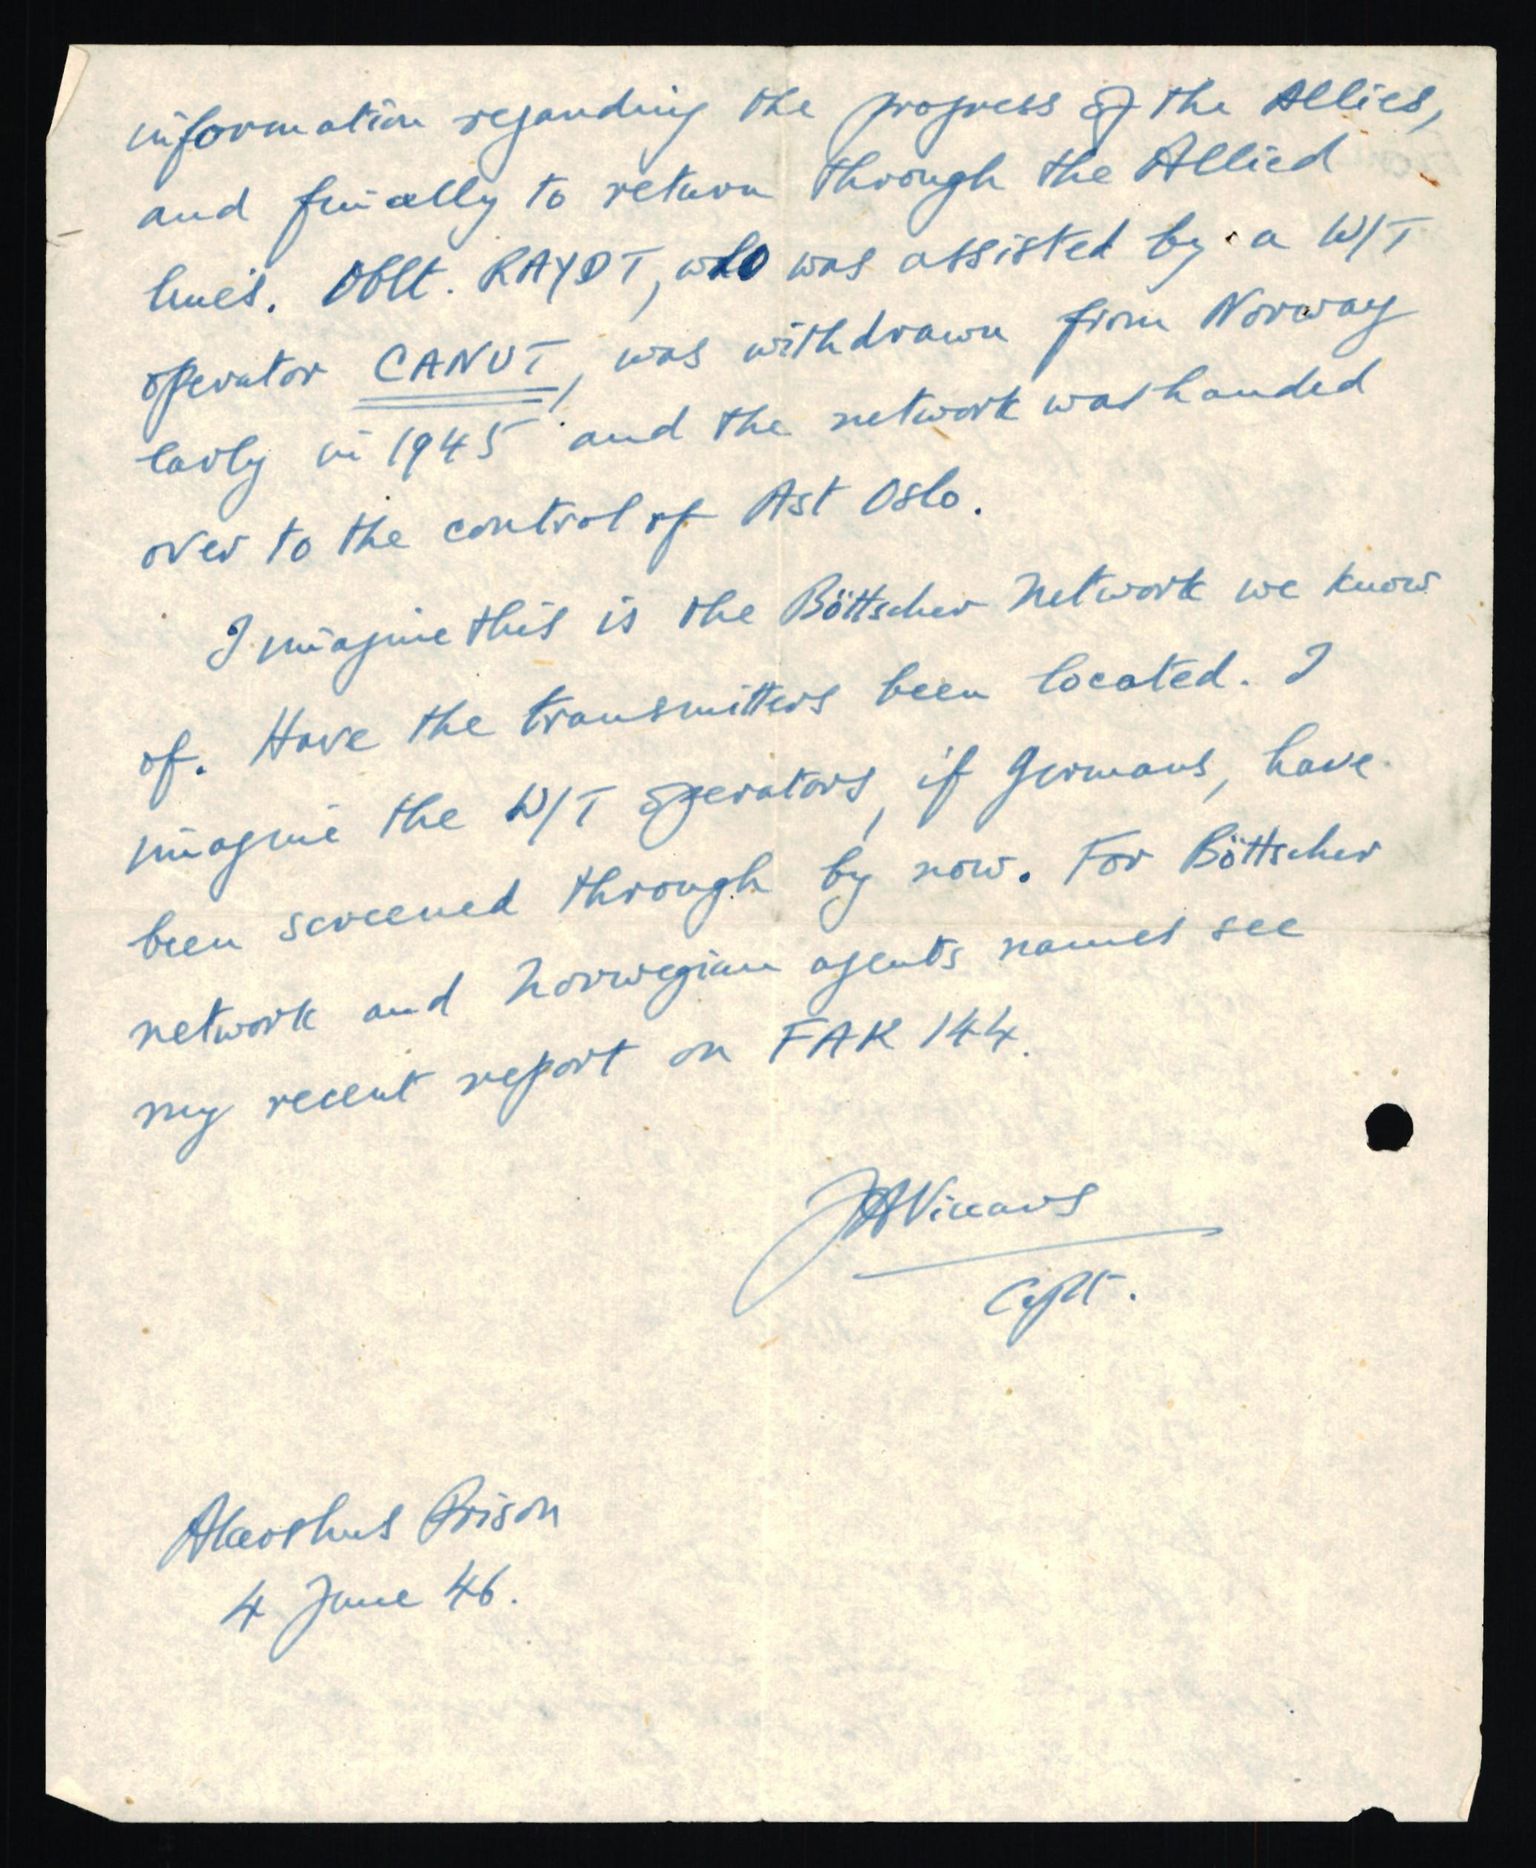 information regarding the progress of the Allies,
and finally to return through the Allied
lines. Oblt. RAYDT, who was assisted by a W/T
operator CANUT, was withdrawn from Norway
early in 1945 and the network was handed
over to the control of Ast Oslo.
I imagine this is the Böttscher Network we know
of. Have the transmitters been located. I
imagine the W/T operators, if Germans, have
been screened through by now. For Böttscher
network and Norwegian agents names see
my recent report on FAK 144.
JAViccars
Capt.
Akershus Prison
4 June 46.